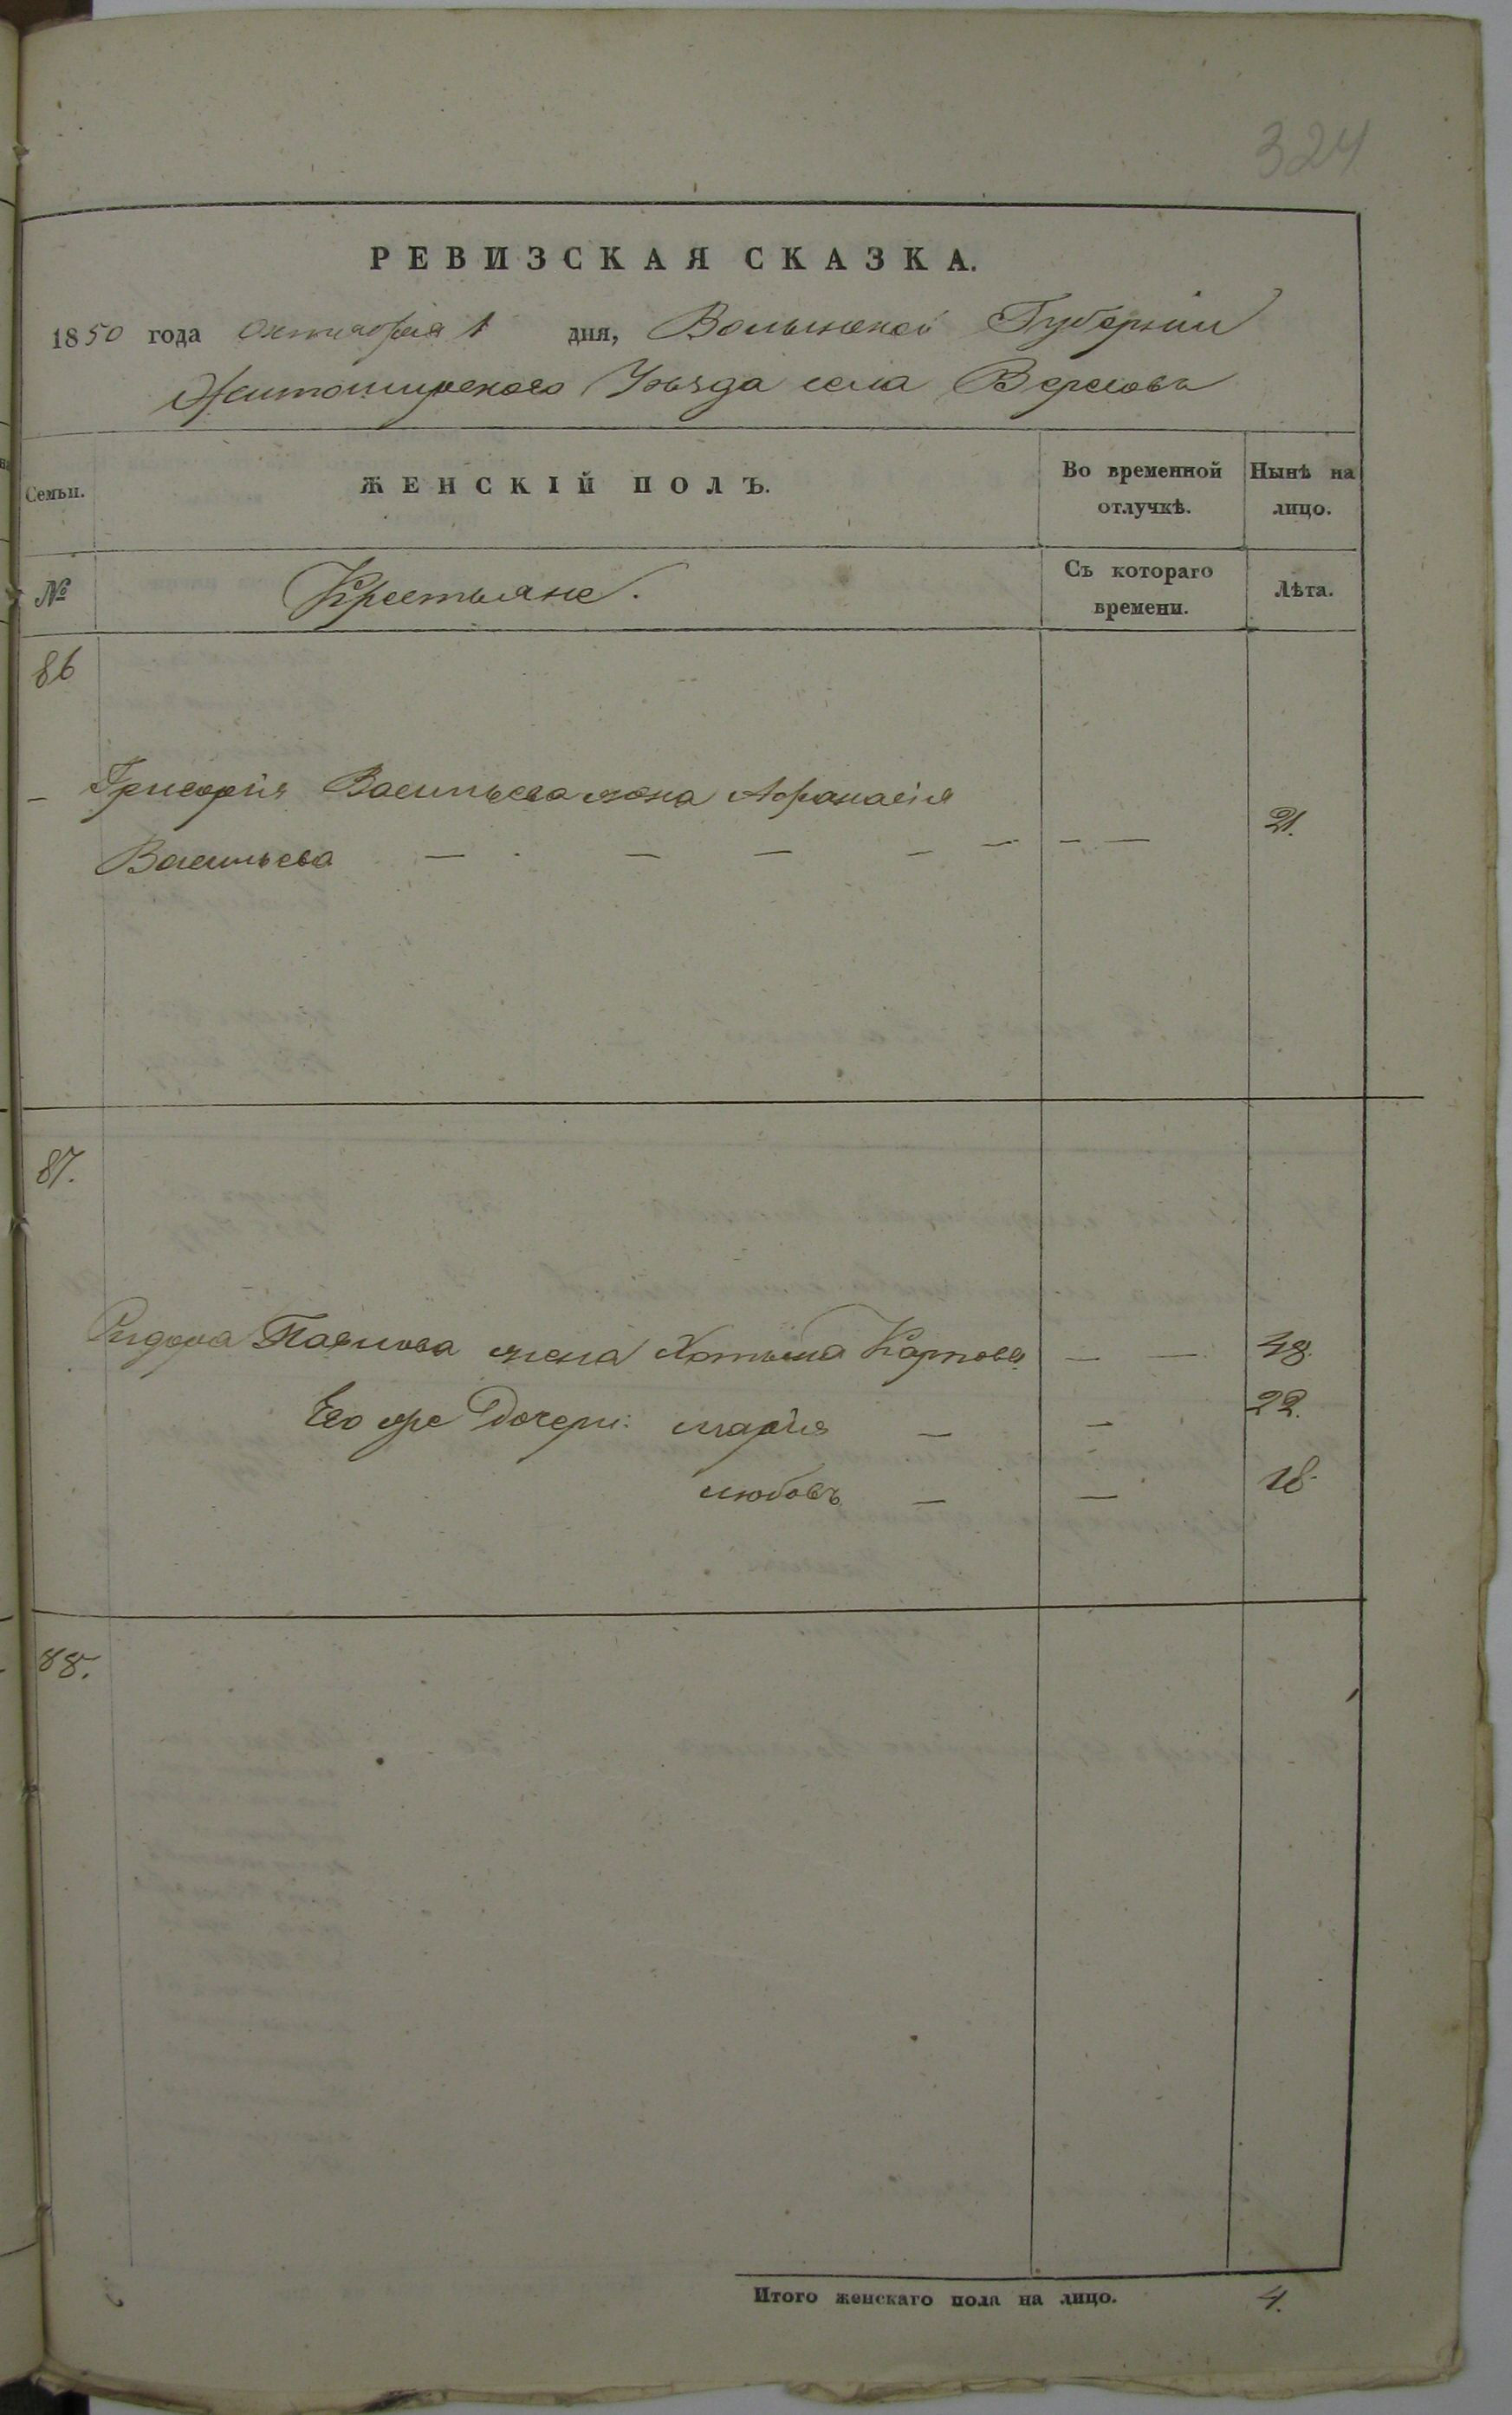 324
РЕВИЗСКАЯ СКАЗКА.
1850 года Октября 1 дня, Волынской Губернии
Житомирского Уѣзда села
Семьи.
ЖЕНСКІЙ ПОЛЪ.
Во временной отлучкѣ.
Нынѣ на лицо.
№
Крестьяне.
Съ котораго времени.
Лѣта.
86
— Григорія Васильева жена Афанасія
Васильева — - — — — — — — 21.
87.
Сидора Павлова жена Хотына Карпова — — 48.
Его же Дочери: марія — — 22.
любовь — — 18.
88.
Итого женскаго пола на лицо. 4.